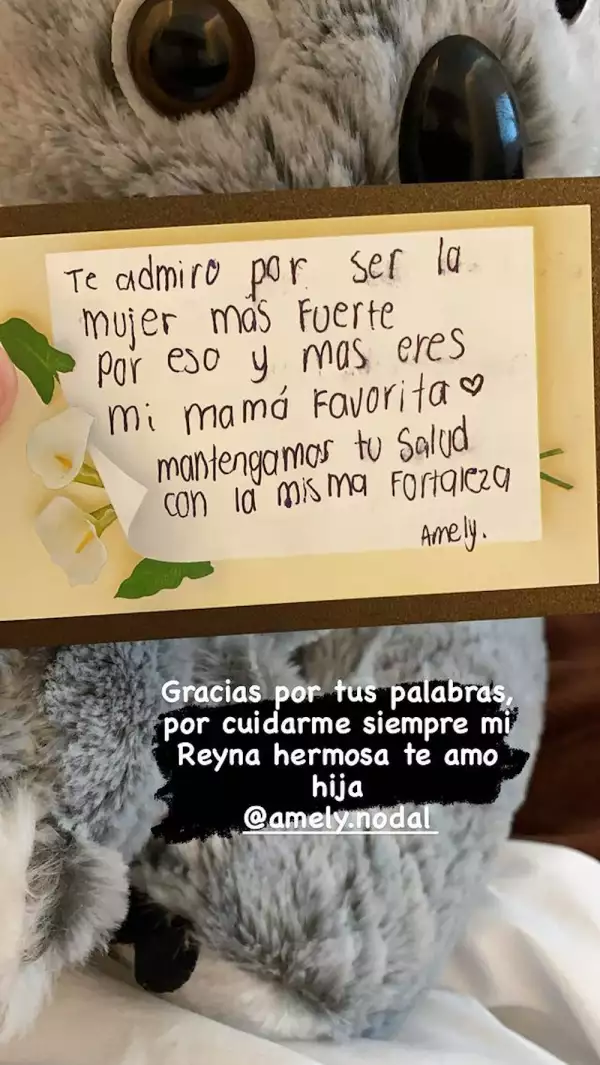 Te admiro por ser la
mujer más Fuerte
por eso y mas eres
mi mamá Favorita♡
mantengamos tu Salud
con la misma Fortaleza
Amely.
Gracias por tus palabras,
por cuidarme siempre mi
Reyna hermosa te amo
hija
@amely.nodal